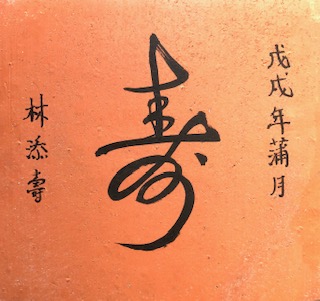 戊戌年蒲月
寿
林添壽